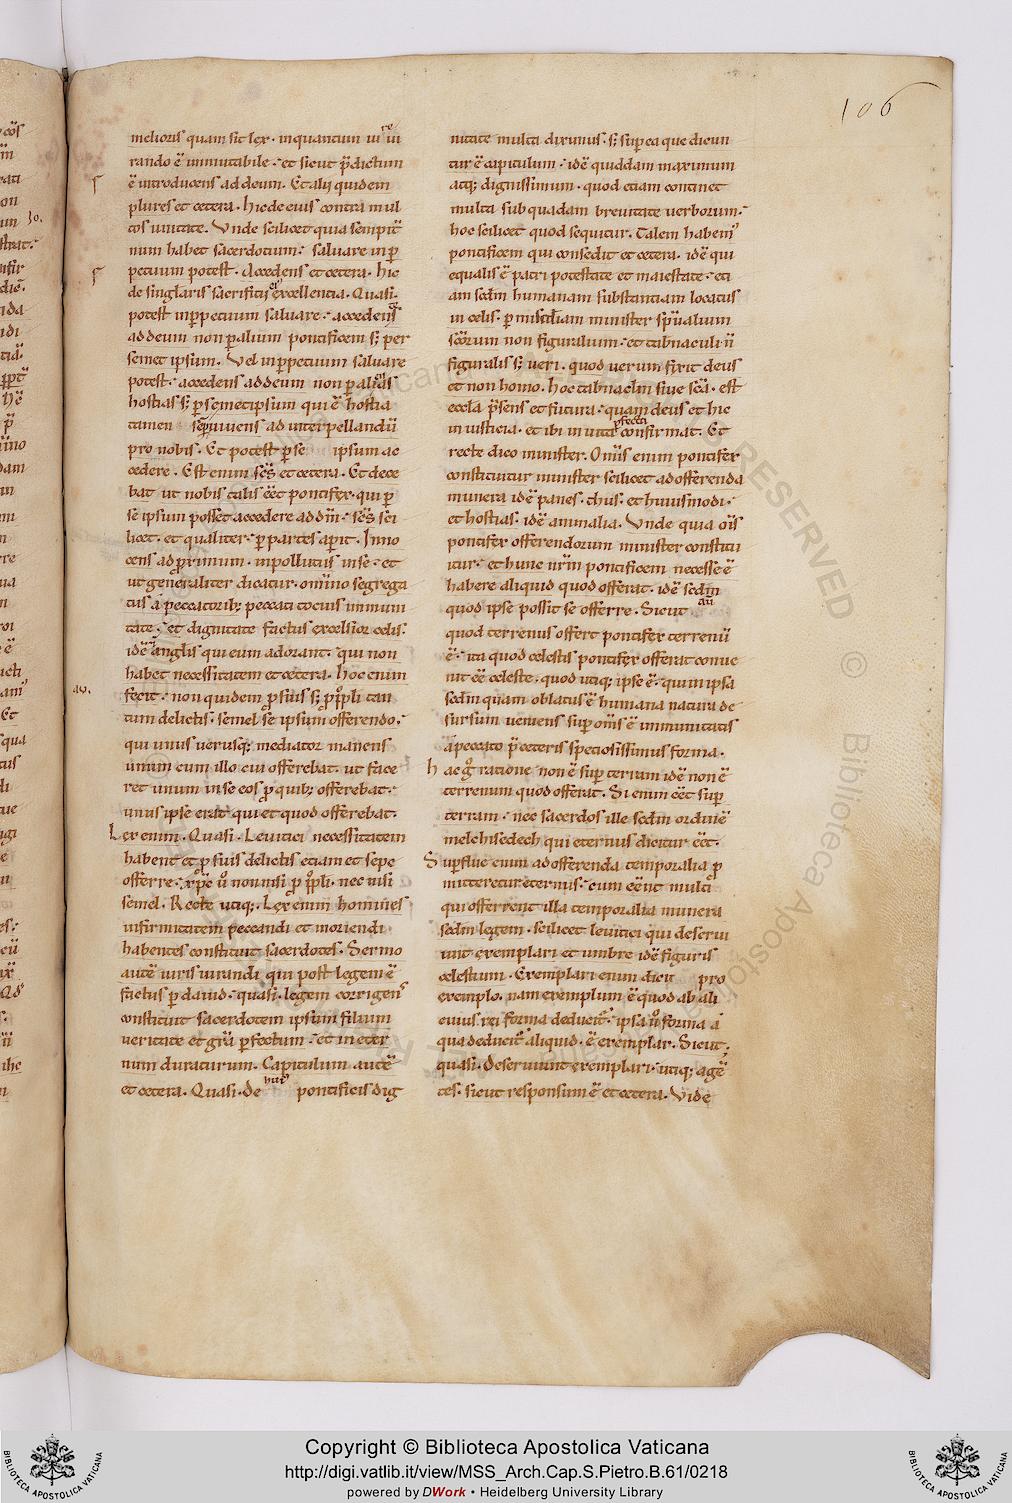 106
melioris quam sit lex. inquantum iu re iu
rando ē inmutabile. et sicut p̄dictum
ē introducens ad deum. Et alij quidem
plures et cetera. hic de eius contra mul
tos unitate. Unde scilicet quia sempit̄
num habet sacerdotium. saluare in p̱
petuum potest. Accedens et cetera. hic
de singlaris sacrificii excellentia. Quasi.
potest inp̱petuum saluare. accedens
ad deum non p̱ alium pontificem s; per
semet ipsum. Vel inp̱petuum saluare
potest. accedens ad deum non p̱ alias
hostias s; p̱ semetipsum qui ē hostia
tamen semp̱ uiuens ad interpellandū
pro nobis. Et potest p̱ se ipsum ac
cedere. Est enim sc̄s et cetera. Et dece
bat ut nobis talis eēt pontifex. qui p̱
se ipsum posset accedere ad dm̄. sc̄s sci
licet. et qualiter. p̱ partes ap̱it. Inno
cens ad proximum. inpollutus in se. et
ut generaliter dicatur. omīno segrega
tus a peccatorib; peccati totius inmuni
tate. et dignitate factus excelsior celis.
idē anglis qui eum adorant. qui non
habet necessitatem et cetera. hoc enim
fecit. non quidem p̱ suis s; p̱ ipli tan
tum delictis. semel se ipsum offerendo.
qui unus uerusq; mediator manens
unum cum illo cui offerebat. ut face
ret unum in se eos p̱ quib; offerebat.
unus ipse erat qui et quod offerebat.
Lex enim. Quasi. Leuitici necessitatem
habent et p̱ suis delictis etiam et sepe
offerre. xp̄c ū non nisi p̱ ip̱li. nec nisi
semel. Recte utiq;. Lex enim homines
infirmitatem peccandi et moriendi
habentes constituit sacerdotes. Sermo
autē iuris iurandi qui post legem ē
factus p̱ dauid. quasi. legem corrigens
constituit sacerdotem ipsum filium
ueritate et grā p̱fectum. et in eter
num duraturum. Capitulum autē
et cetera. Quasi. de pontificis dig
nitate multa diximus. s; sup̱ ea que dicun
tur ē capitulum. idē quiddam maximum
atq; dignissimum. quod etiam continet
multa sub quadam breuitate uerborum.
hoc scilicet quod sequitur. Talem habem⁹
pontificem qui consedit et cetera. idē qui
equalis ē patri potestate et maiestate. eti
am scdm̄ humanam substantiam locatus
in celis. minister sp̄ualium
sc̄orum non figuralium. et tab̄naculi ñ
figuralis s; ueri. quod uerum fixit deus
et non homo. hoc tab̄naclm siue sc̄a. est
eccl̄a p̄sens et futura. quam deus et hic
in iusticia. et ibi in uita p̱fecta confirmat. Et
recte dico minister. Om̄is enim pontifex
constituitur minister scilicet ad offerenda
munera idē panes. thus. et huiusmodi.
et hostias. idē animalia. Unde quia om̄s
pontifex offerendorum minister constitu
itur. et hunc nr̄m pontificem necesse ē
habere aliquid quod offerat. idē scdm̄
quod ipse possit se offerre. Sicut
quod terrenus offert pontifex terrenū
ē. ita quod celestis pontifex offerat conue
nit eē celeste. quod utiq; ipse ē. quin ipsa
scdm̄ quam oblatus ē humana natura de
sursum ueniens sup̱ om̄s ē inmunitatis
a peccato p̄ ceteris speciosissimus forma.
hac g̊ ratione non ē sup̱ terram idē non ē
terrenum quod offerat. Si enim eēt sup̱
terram. nec sacerdos ille scdm̄ ordinē
melchisedech qui eternus dicitur eēt.
Sup̱flue enim ad offerenda temporalia p̱
mitteretur eternus. cum eēnt multi
qui offerrent illa temporalia munera
scdm̄ legem. scilicet leuitici qui deserui
unt exemplari et umbre idē figuris
celestium. Exemplari enim dicit pro
exemplo. nam exemplum ē quod ab ali
cuius rei forma deducit̄. ipsa ū forma a
qua deducit̄ aliquid. ē exemplar. Sicut.
quasi. Deseruiunt exemplari. utiq; agē
tes. sicut responsum ē et cetera. Vide
Copyright © Biblioteca Apostolica Vaticana
http://digi.vatlib.it/view/MSS_Arch.Cap.S.Pietro.B.61/0218
powered by DWork • Heidelberg University Library